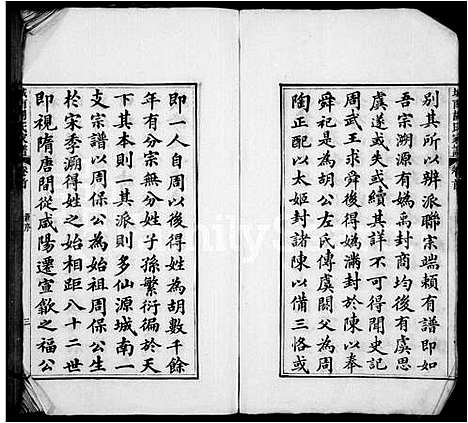 別其所以辨派聯宗端賴有譜即如
吾宗溯源有媯禹封商均後有虞思
虞遂或失或續其詳不可得聞史記
周武王求舜後得媯滿封於陳以奉
舜祀是為胡公左氏傳虞閼父為周
陶正配以太姬封諸陳以備三恪或
即一人自周以後得姓為胡數千餘
年有分宗無分姓子孫繁衍徧於天
下其本則一其派則多仙源城南一
支宗譜以周保公為始祖周保公生
於宋季溯得姓之始相距八十二世
即視隋唐間從咸陽遷宣歙之福公